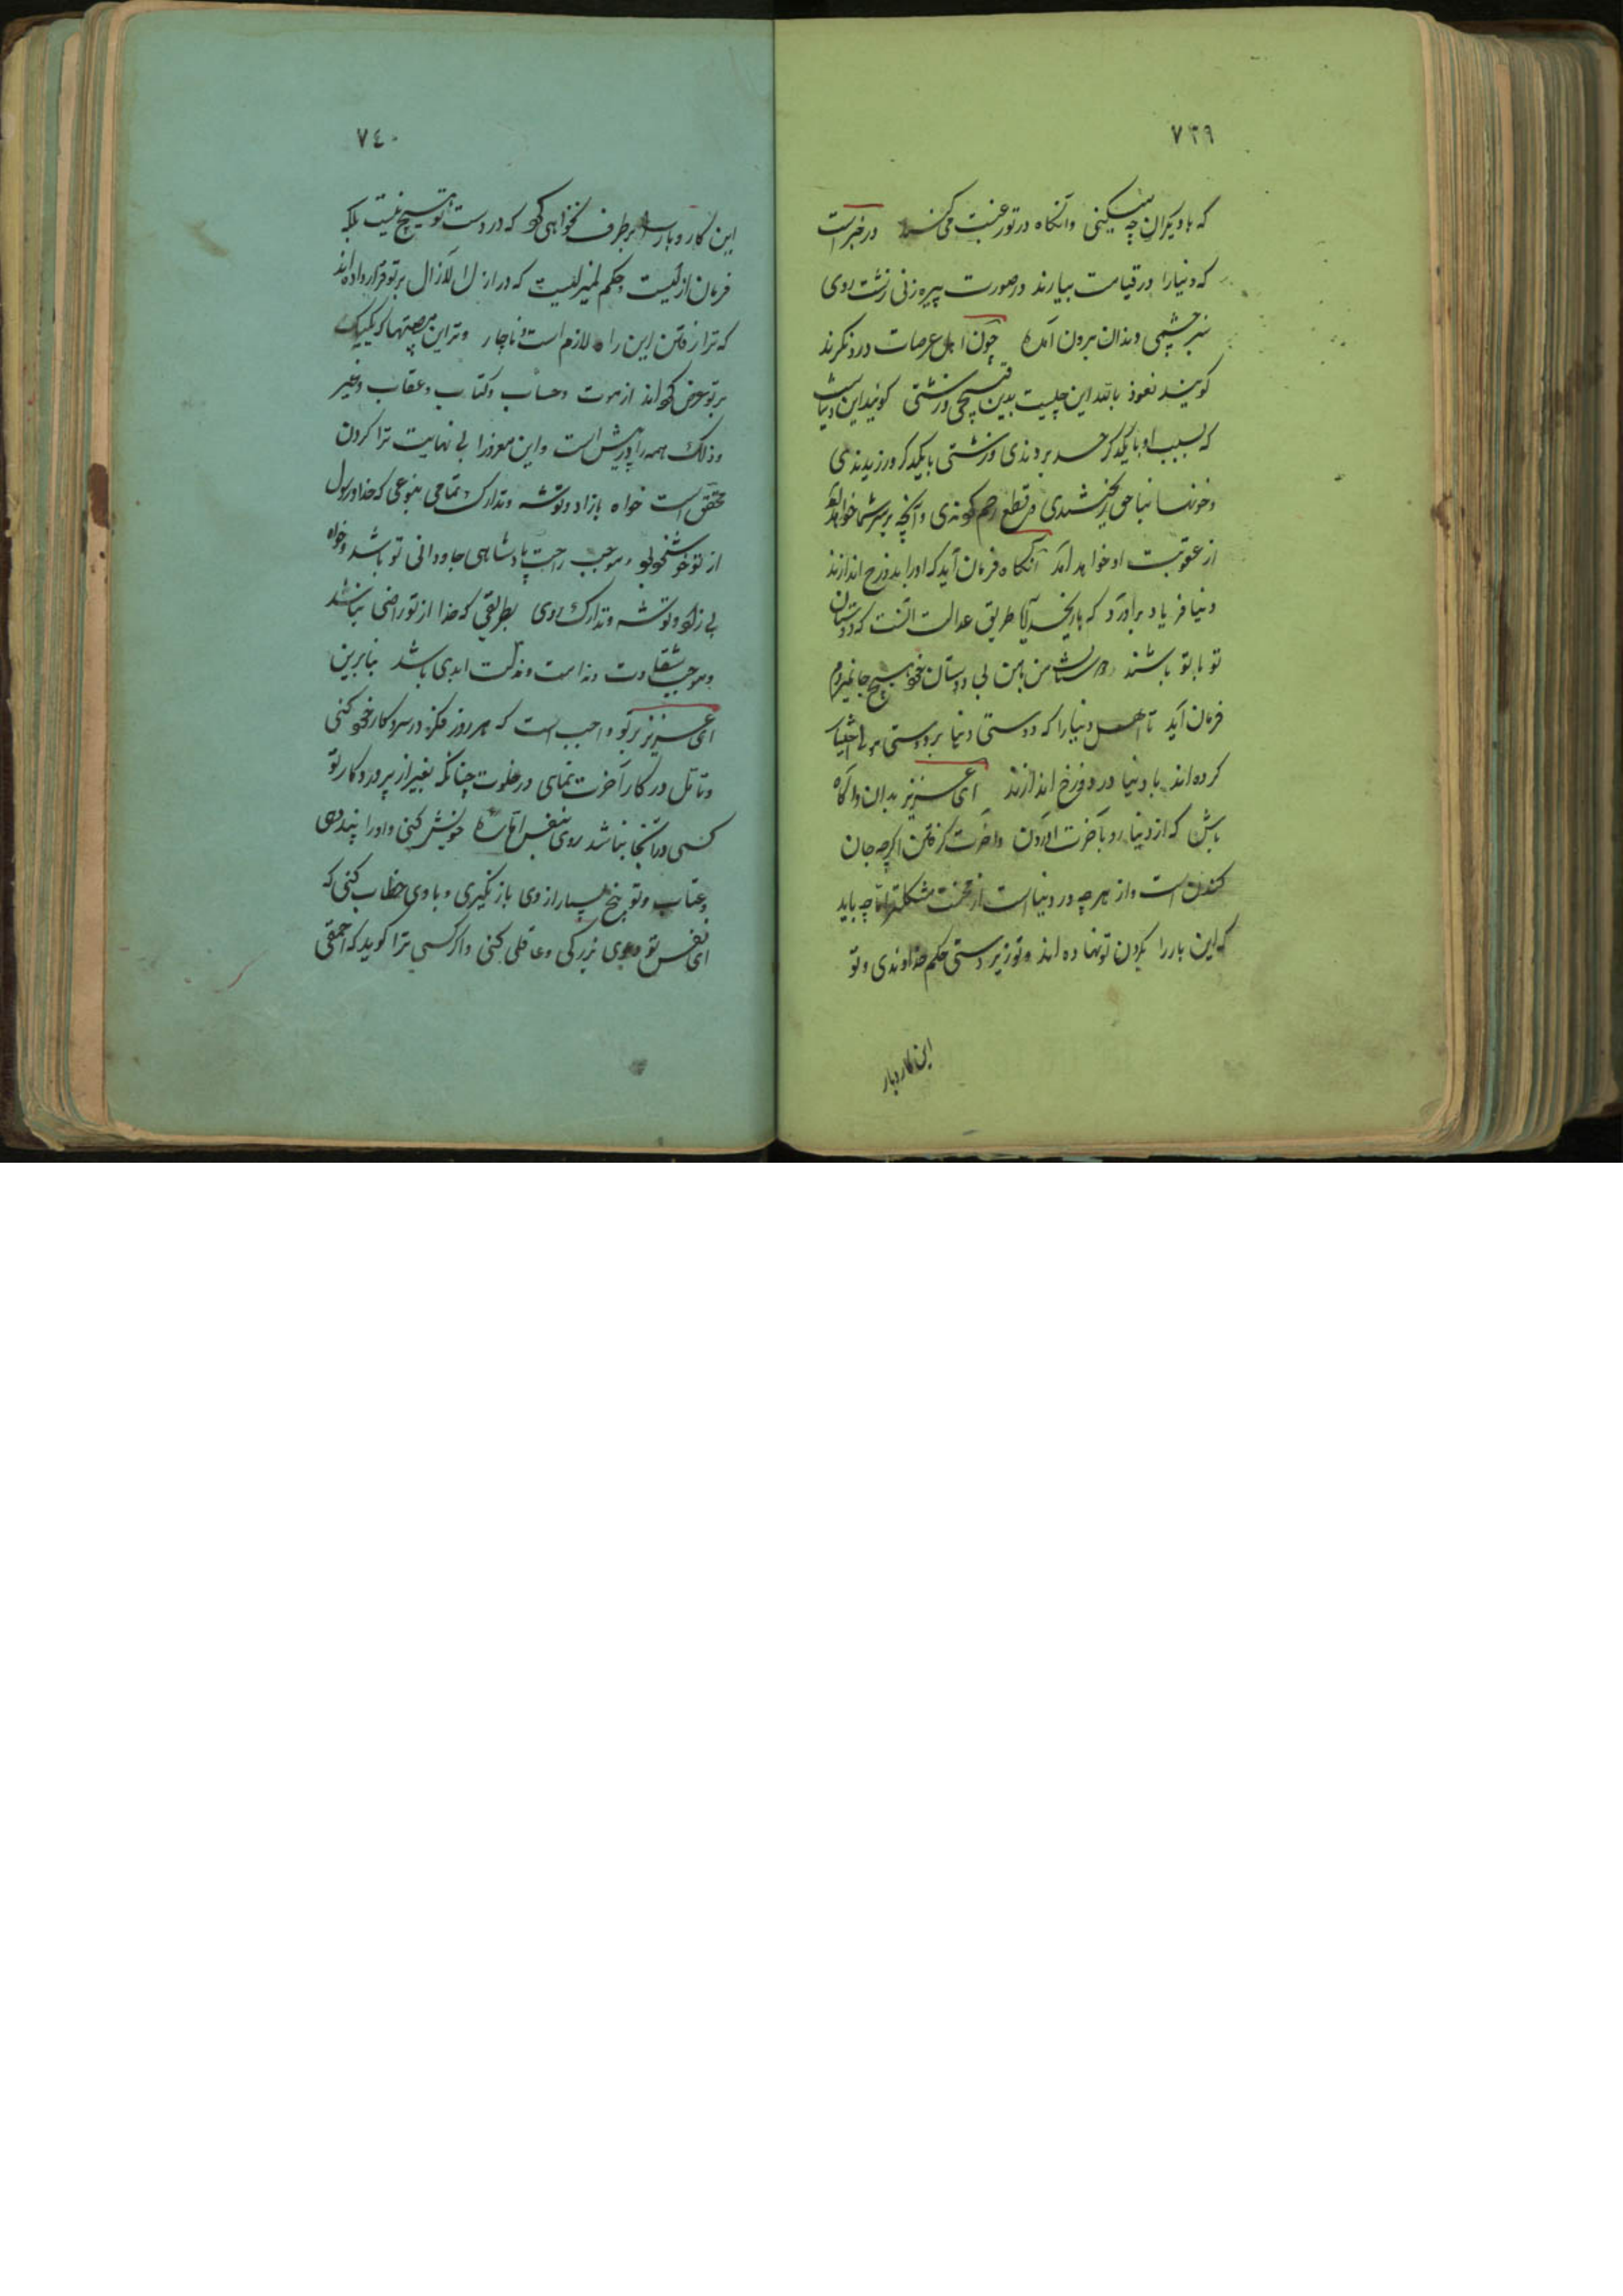 ٧٣٩
که با دیکران چه میکنی وانکاه در تو رغبت می کنند در خبر است
که دنیا را در قیامت بیارند در صورت پیره زنی زشت روی
سبز چشمی دندان برون آمده چون اهل عرصات درو نکرند
کویند نعوذ بالله این چیست بدین قبیحی و زشتی کویند این دنیاست
که بسبب او با یکدکر حسد بردندی و زشتی با یکدکر ورزیدندی
و خونها بناحق ریختندی و قطع رحم کردندی و آنچه بر سر شما خواهد آمد
از عقوبت او خواهد آمد آنکاه فرمان آید که او را بدوزخ اندازند
دنیا فریاد برآورد که بار خدایا طریق عدالت آنست که دوستان
تو با تو باشند و دوستان من با من بی دوستان خود هیچ جا نمیروم
فرمان آید تا اهل دنیا را که دوستی دنیا بر دوستی مولی اختیار
کرده اند با دنیا در دوزخ اندازند ای عزیز بدان و آکاه
باش که از دنیا رو بآخرت آوردن و آخرت کرفتن اکرچه جان
کندن است و از هر چه در دنیا است از محنت مشکلتر اما چه باید
که این بار را بکردن تو نهاده اند و تو زیر دستی حکم خداوندی و تو
این کار و بار
٧٤٠
این کار و بار را بر طرف نخواهی کرد که در دست تو هیچ نیست بلکه
فرمان ازلیست و حکم لم یزلیست که در ازل لا یزال بر تو قرار داده اند
که ترا رفتن این راه لازم است و ناچار و ترا این مصیبتها که یکیک
بر تو عرض کرده اند از موت و حساب و کتاب و عقاب و غیر
و ذلک همه را در پیش است و این سفر را بی نهایت ترا کردن
محقق است خواه با زاد و توشه و تدارک و تمامی بنوعی که خدا و رسول
از تو خوشنود بود و موجب راحت پادشاهی جاودانی تو باشد و خواه
بی زاد و توشه و تدارک روی بطریقی که خدا از تو راضی نباشد
و موجب شقاوت و ندامت و مذلت ابدی باشد بنابرین
ای عزیز بر تو واجب است که هر روز فکر در سر و کار خود کنی
و تامل در کار آخرت نمای در خلوت چنانکه بغیر از پروردکار تو
کسی در آنجا نباشد روی بنفس اماره خویش کنی و او را پند دهی
و عتاب و توبیخ بسیار از وی باز نکیری و با وی خطاب کنی که
ای نفس تو دعوی زیرکی و عاقلی کنی و اکر کسی ترا کوید که احمقی